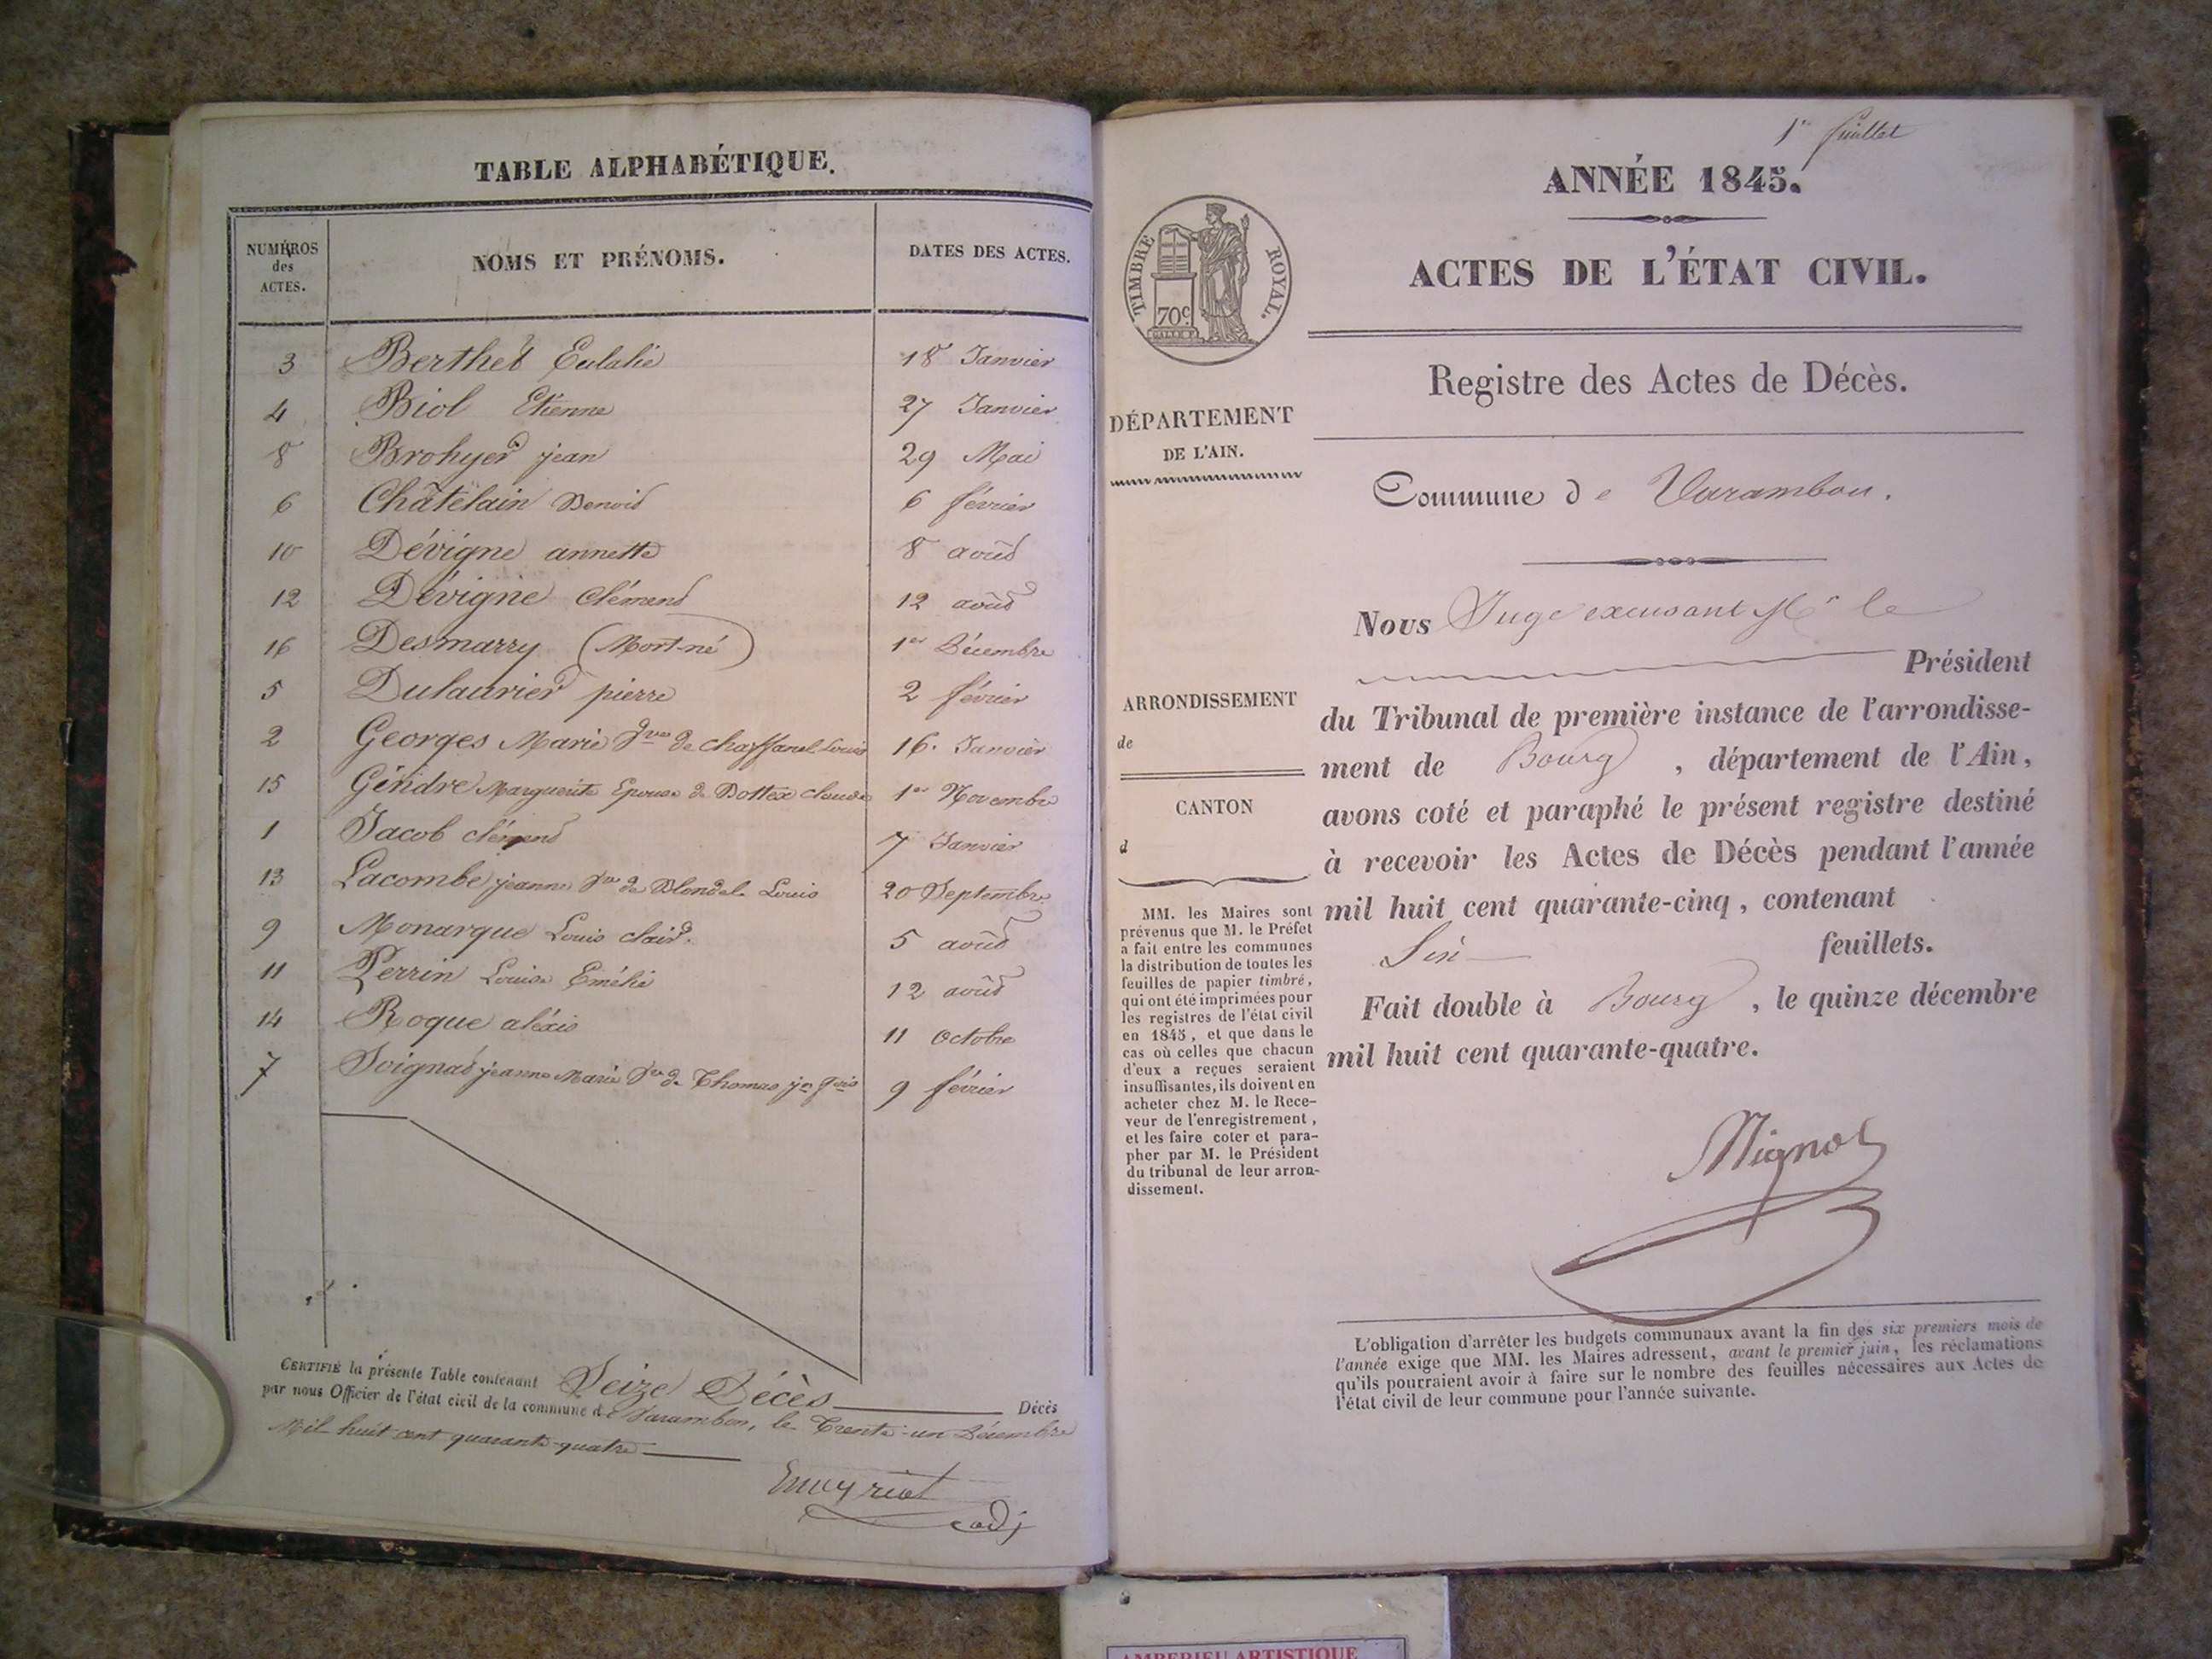 TABLE ALPHABÉTIQUE.
NUMÉROS
des
ACTES.
NOMS ET PRÉNOMS.
DATES DES ACTES.
3 Berthet Eulalie 18 Janvier
4 Biol Etienne 27 Janvier
8 Brohyer jean 29 Mai
6 Châtelain Benoit 6 février
10 Dévigne annette 8 août
12 Dévigne Clément 12 août
16 Desmarry (Mort-né) 1er Décembre
5 Dulaurier pierre 2 février
2 Georges Marie Vve de Chaffanel Louis 16. Janvier
15 Gindre Marguerite Epouse de Bottex Claude 1er Novembre
1 Jacob clément 7 Janvier
13 Lacombe jeanne Ve de Blondel Louis 20 Septembre
9 Monarque Louis clair. 5 août
11 Perrin Louise Emélie 12 août
14 Roque aléxis 11 Octobre
7 Soignat jeanne Marie Ve de Thomas jn fçois 9 février
CERTIFIÉ la présente Table contenant Seize Décès Décès
par nous Officier de l'état civil de la commune de Varambon, le Trente-un Décembre
Mil huit cent quarante-quatre
adj
1er feuillet
ANNÉE 1845.
ACTES DE L'ÉTAT CIVIL.
TIMBRE ROYAL.
70c.
Registre des Actes de Décès.
DÉPARTEMENT
DE L'AIN.
Commune de Varambon.
Nous Juge excusant Mr le
Président
du Tribunal de première instance de l'arrondisse-
ment de Bourg, département de l'Ain,
avons coté et paraphé le présent registre destiné
à recevoir les Actes de Décès pendant l'année
mil huit cent quarante-cinq, contenant
Six feuillets.
Fait double à Bourg, le quinze décembre
mil huit cent quarante-quatre.
Mignot
ARRONDISSEMENT
de
CANTON
d
MM. les Maires sont
prévenus que M. le Préfet
a fait entre les communes
la distribution de toutes les
feuilles de papier timbré,
qui ont été imprimées pour
les registres de l'état civil
en 1845, et que dans le
cas où celles que chacun
d'eux a reçues seraient
insuffisantes, ils doivent en
acheter chez M. le Rece-
veur de l'enregistrement,
et les faire coter et para-
pher par M. le Président
du tribunal de leur arron-
dissement.
L'obligation d'arrêter les budgets communaux avant la fin des six premiers mois de
l'année exige que MM. les Maires adressent, avant le premier juin, les réclamations
qu'ils pourraient avoir à faire sur le nombre des feuilles nécessaires aux Actes de
l'état civil de leur commune pour l'année suivante.
AMBERIEU ARTISTIQUE